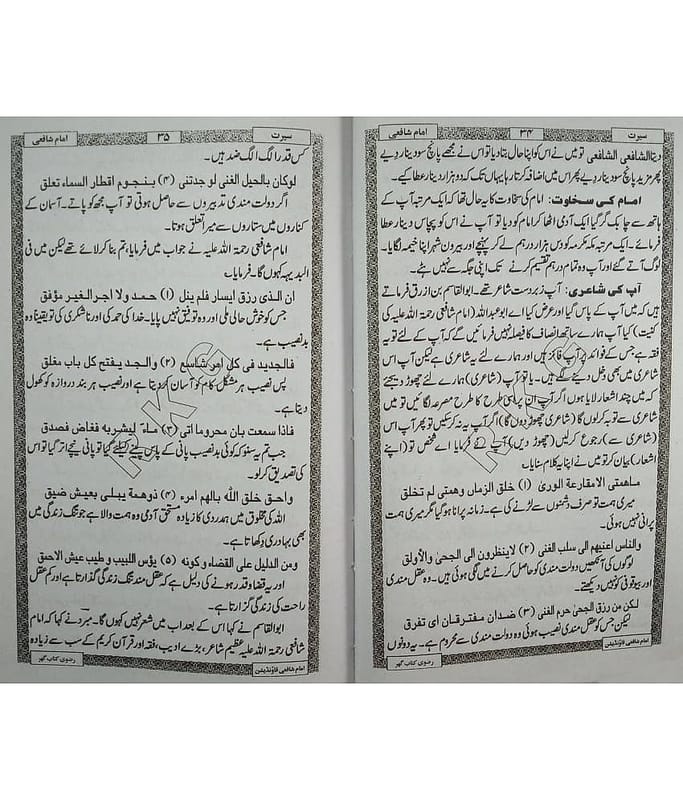 سیرت ۳۴ امام شافعی
دینا الشافعی الشافعی تو میں نے اس کو اپنا حال بتا دیا تو اس نے مجھے پانچ سو دینار دیے
پھر مزید پانچ سو دینار دیے پھر اس میں اضافہ کرتا رہا یہاں تک کہ دو ہزار دینار عطا کیے۔
امام کی سخاوت: امام کی سخاوت کا یہ حال تھا کہ ایک مرتبہ آپ کے
ہاتھ سے چابک گر گیا ایک آدمی اٹھا کر امام کو دیا تو آپ نے اس کو پچاس دینار عطا
فرمائے۔ ایک مرتبہ مکہ مکرمہ کو دس ہزار درہم لے کر پہنچے اور بیرون شہر اپنا خیمہ لگایا۔
لوگ آتے گئے اور آپ وہ تمام درہم تقسیم کرنے تک اپنی جگہ سے نہیں ہٹے۔
آپ کی شاعری: آپ زبردست شاعر تھے۔ ابوالقاسم بن ازرق فرماتے
ہیں کہ میں آپ کے پاس گیا اور عرض کیا اے ابو عبداللہ (امام شافعی رحمۃ اللہ علیہ کی
کنیت) کیا آپ ہمارے ساتھ انصاف کا فیصلہ نہیں فرمائیں گے کہ آپ کے لئے تو یہ
فقہ ہے جس کے فوائد پر آپ فائز ہیں اور ہمارے لئے یہ شاعری ہے لیکن آپ اس
شاعری میں بھی دخل دینے لگے ہیں۔ یا تو آپ (شاعری) ہمارے لئے چھوڑ دیجئے
کہ میں چند اشعار لایا ہوں اگر آپ ان پر اسی طرح کا طرح مصرعہ لگائیں تو میں
شاعری سے توبہ کرلوں گا (شاعری چھوڑ دوں گا) اگر آپ یہ نہ کرسکیں تو پھر آپ اس
(شاعری سے) رجوع کرلیں (چھوڑ دیں) آپ نے فرمایا اے شخص تو (اپنے
اشعار) بیان کر تو میں نے اپنا یہ کلام سنایا۔
ماهمتی الامقارعة الوریٰ (۱) خلق الزمان وهمتی لم تخلق
میری ہمت تو صرف دشمنوں سے لڑنے کی ہے۔ زمانہ پرانا ہو گیا مگر میری ہمت
پرانی نہیں ہوئی۔
والناس اعنیهم الی سلب الغنی (۲) لاینظرون الی الحجیٰ والأولق
لوگوں کی آنکھیں دولت مندی کو حاصل کرنے میں لگی ہوئی ہیں۔ وہ عقل مندی
اور بیوقوفی کو نہیں دیکھتے۔
لکن من رزق الحجیٰ حرم الغنی (۳) ضدان مفترقان ای تفرق
لیکن جس کو عقل مندی نصیب ہوئی وہ دولت مندی سے محروم ہے۔ یہ دونوں
رضوی کتاب گھر امام شافعی فاؤنڈیشن
سیرت ۳۵ امام شافعی
کس قدر الگ الگ ضد ہیں۔
لوکان بالحیل الغنی لو جدتنی (۴) بنجوم اقطار السماء تعلق
اگر دولت مندی تدبیروں سے حاصل ہوتی تو آپ مجھ کو پاتے۔ آسمان کے
کناروں میں ستاروں سے میرا تعلق ہوتا۔
امام شافعی رحمۃ اللہ علیہ نے جواب میں فرمایا، تم بنا کر لائے تھے لیکن میں فی
البدیہہ کہوں گا۔ فرمایا۔
ان الذی رزق ایسار فلم ینل (۱) حمد ولا اجر الغیر مؤفق
جس کو خوش حالی ملی اور وہ توفیق نہیں پایا۔ خدا کی حمد کی اور ناشکری کی تو یقینا وہ
بدنصیب ہے۔
فالجدید فی کل امر شاسع (۲) والجد یفتح کل باب مغلق
پس نصیب ہر مشکل کام کو آسان کردیتا ہے اور نصیب ہر بند دروازہ کو کھول
دیتا ہے۔
فاذا سمعت بان محروما اتی (۳) ماء لیشربه فغاض فصدق
جب تم یہ سنو کہ کوئی بدنصیب پانی کے پاس پینے کیلئے گیا تو پانی نیچے اتر گیا تو اس
کی تصدیق کرلو۔
واحق خلق الله بالهم امرء (۴) ذوهمة یبلی بعیش ضیق
اللہ کی مخلوق میں ہمدردی کا زیادہ مستحق آدمی وہ ہمت والا ہے جو تنگ زندگی میں
بھی بہادری دکھاتا ہے۔
ومن الدلیل علی القضاء و کونه (۵) یؤس اللبیب و طیب عیش الاحمق
اور یہ قضا و قدر ہونے کی دلیل ہے کہ عقل مند تنگ زندگی گذارتا ہے اور کم عقل
راحت کی زندگی گزارتا ہے۔
ابوالقاسم نے کہا اس کے بعد اب میں شعر نہیں کہوں گا۔ مبرد نے کہا کہ امام
شافعی رحمۃ اللہ علیہ عظیم شاعر، بڑے ادیب، فقہ اور قرآن کریم کے سب سے زیادہ
رضوی کتاب گھر امام شافعی فاؤنڈیشن